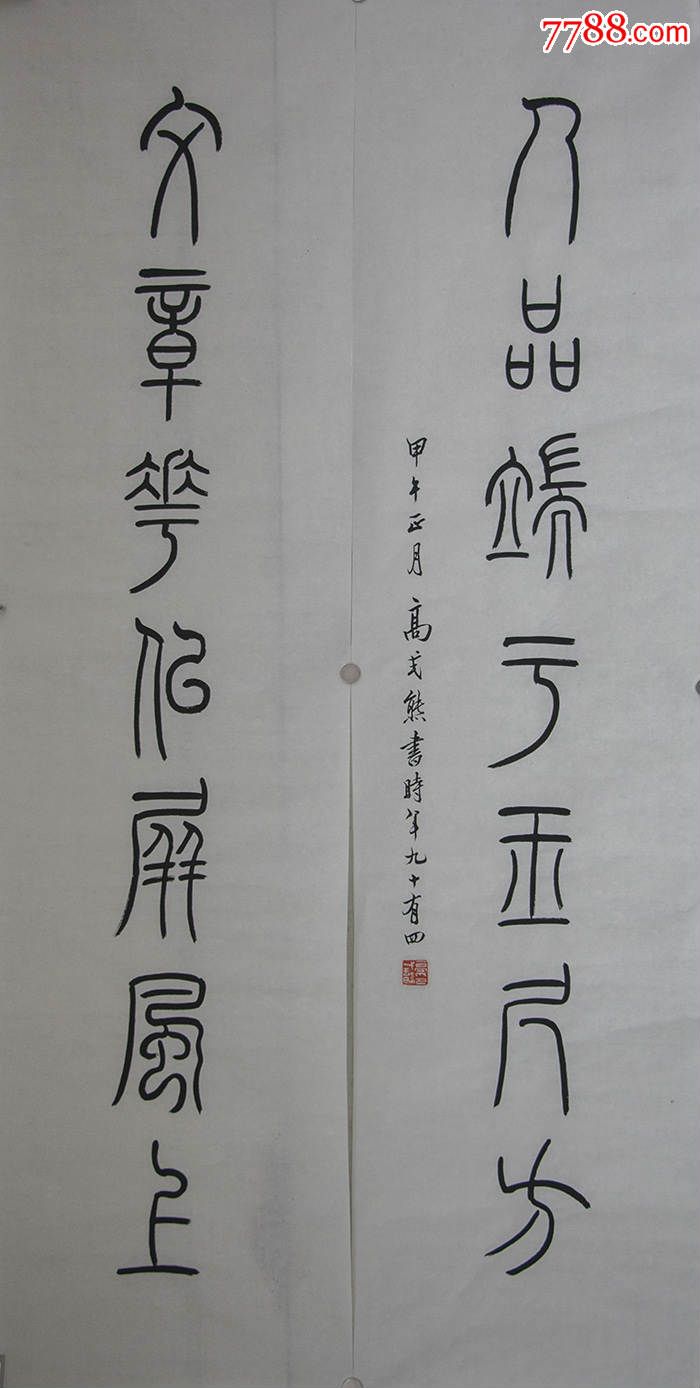 7788.com
人品端于玉尺方
甲午正月 高式熊書時年九十有四
文章華似屏風上